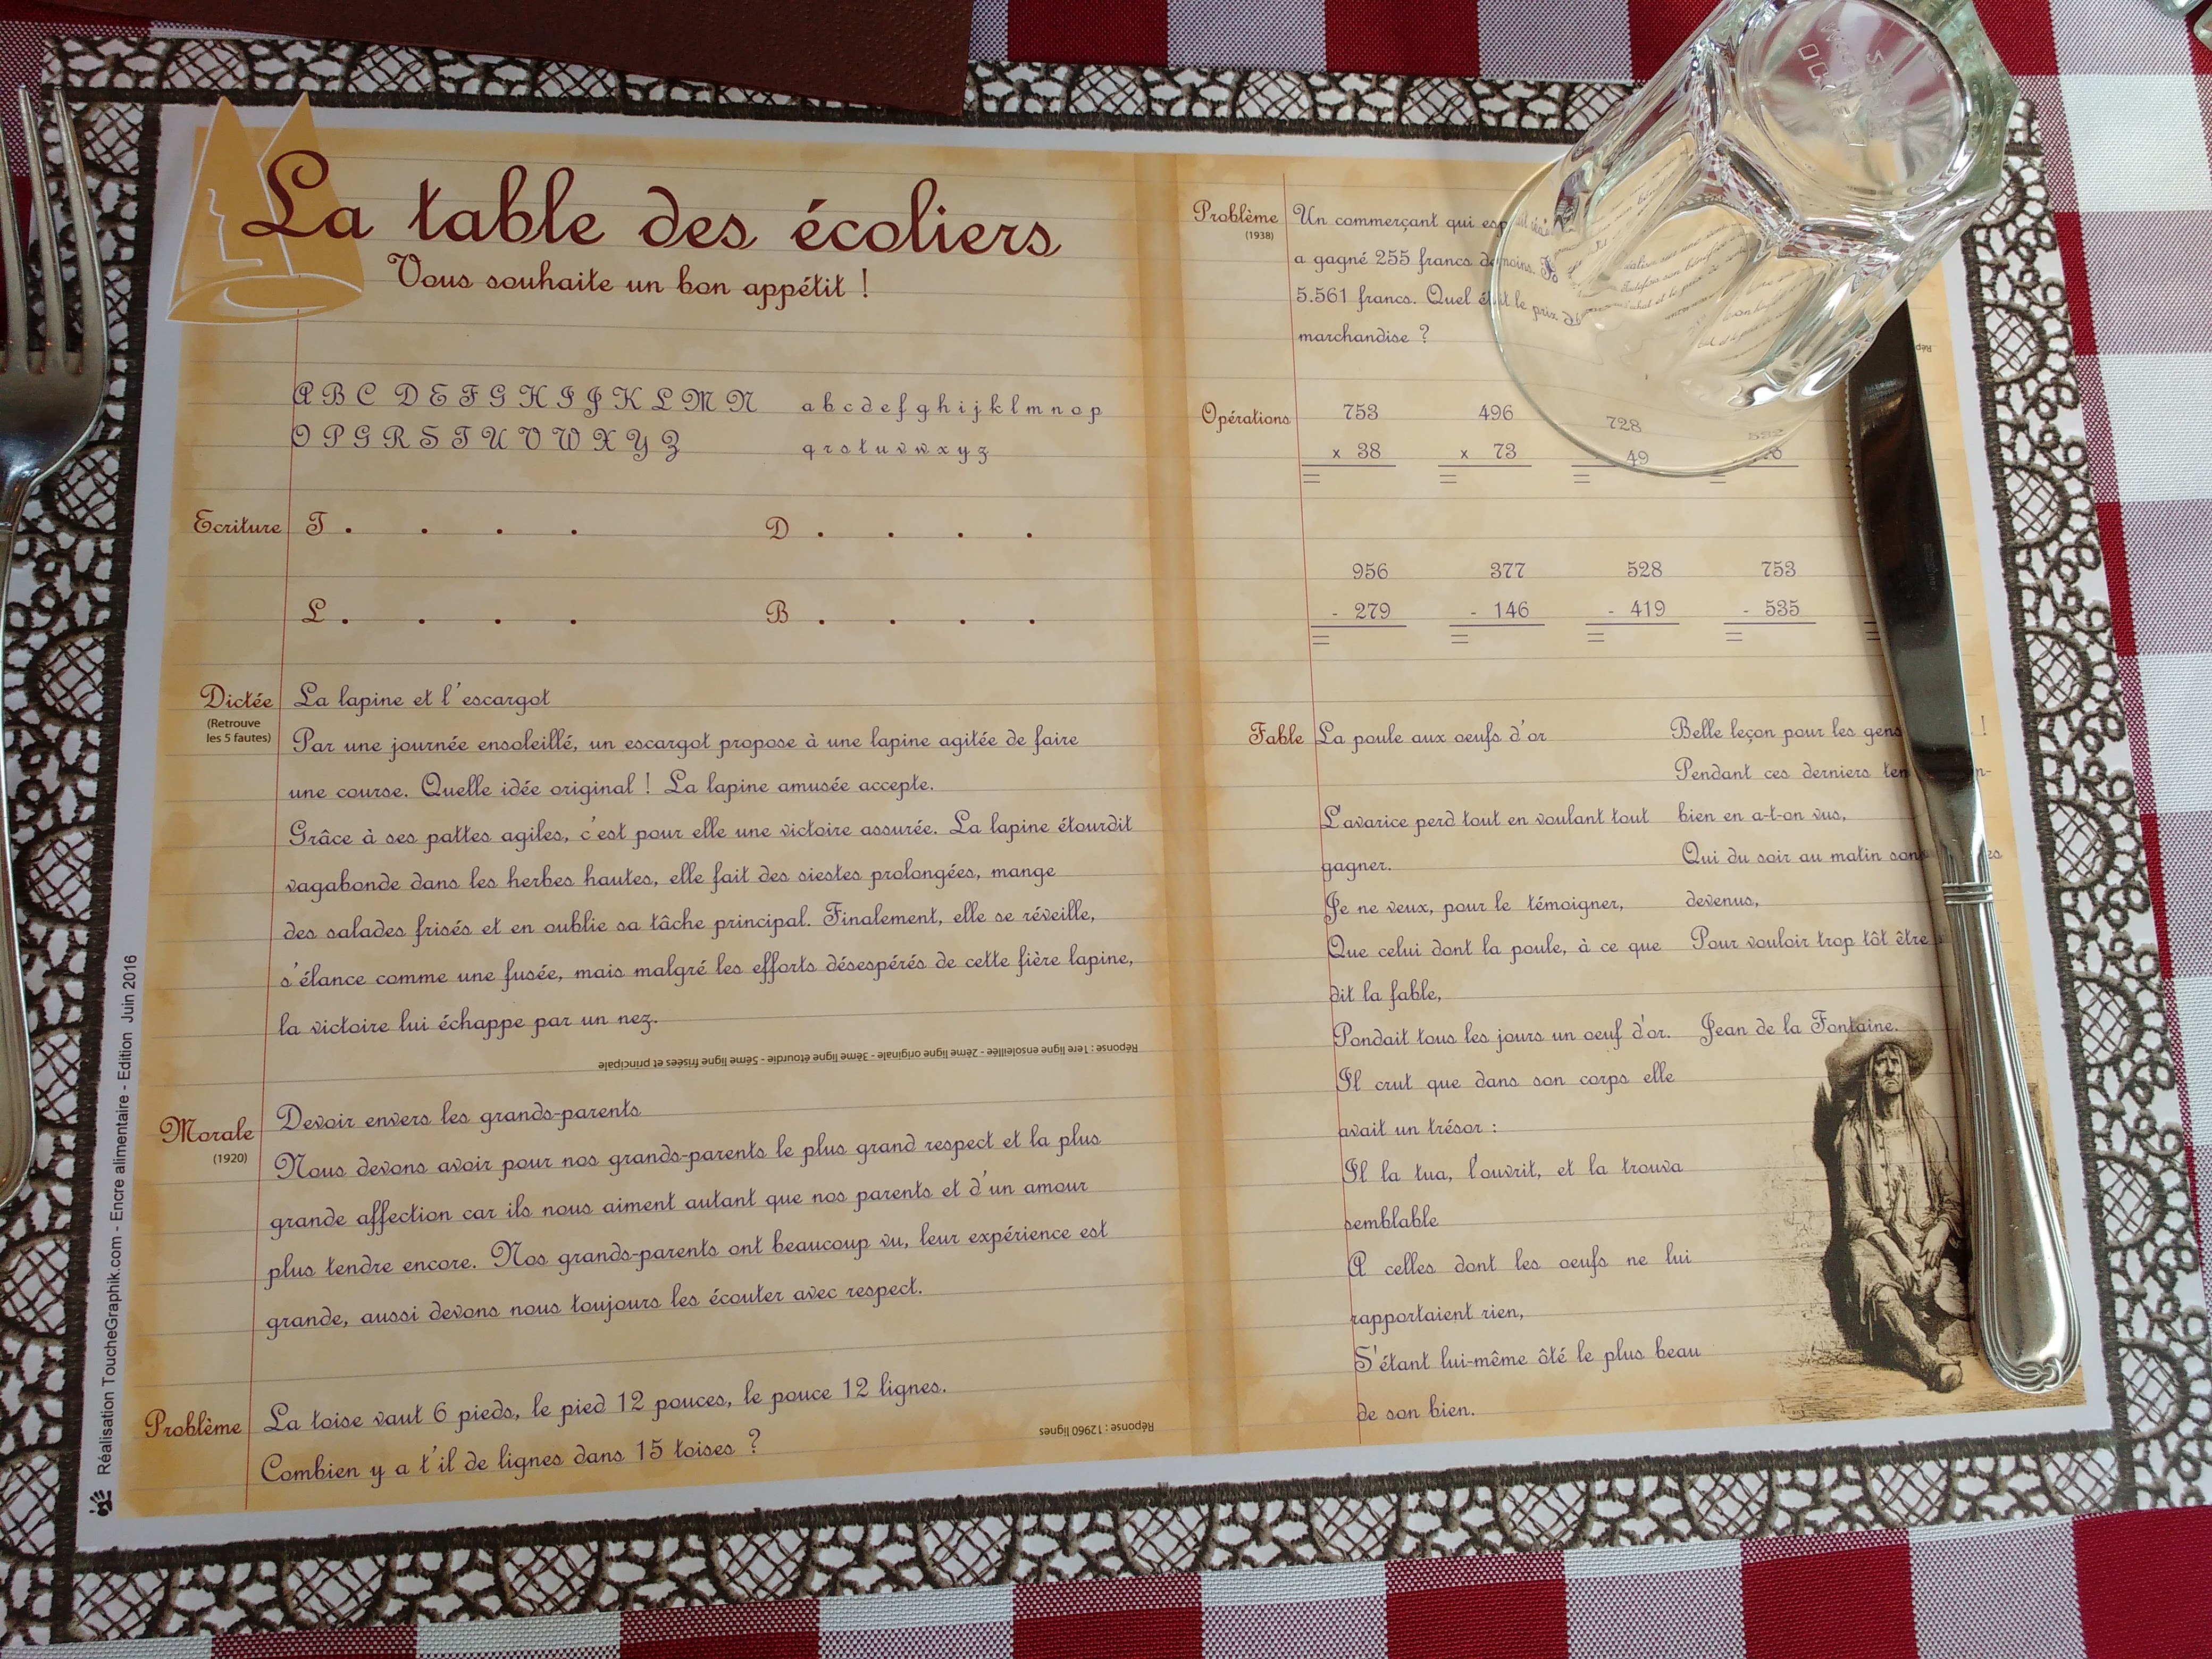 La table des écoliers
Vous souhaite un bon appétit !
A B C D E F G H I J K L M N
O P Q R S T U V W X Y Z
a b c d e f g h i j k l m n o p
q r s t u v w x y z
Ecriture T . . . . D . . . .
L . . . . B . . . .
Dictée La lapine et l'escargot
(Retrouve
les 5 fautes)
Par une journée ensoleillé, un escargot propose à une lapine agitée de faire
une course. Quelle idée original ! La lapine amusée accepte.
Grâce à ses pattes agiles, c'est pour elle une victoire assurée. La lapine étourdit
vagabonde dans les herbes hautes, elle fait des siestes prolongées, mange
des salades frisés et en oublie sa tâche principal. Finalement, elle se réveille,
s'élance comme une fusée, mais malgré les efforts désespérés de cette fière lapine,
la victoire lui échappe par un nez.
Réponse : 1ère ligne ensoleillée - 2ème ligne originale - 3ème ligne étourdie - 5ème ligne frisées et principale
Morale Devoir envers les grands-parents
(1920)
Nous devons avoir pour nos grands-parents le plus grand respect et la plus
grande affection car ils nous aiment autant que nos parents et d'un amour
plus tendre encore. Nos grands-parents ont beaucoup vu, leur expérience est
grande, aussi devons nous toujours les écouter avec respect.
Problème La toise vaut 6 pieds, le pied 12 pouces, le pouce 12 lignes.
Combien y a t'il de lignes dans 15 toises ?
Réponse : 12960 lignes
Réalisation ToucheGraphik.com - Encre alimentaire - Edition Juin 2016
Problème Un commerçant qui
(1938)
a gagné 255 francs de moins.
5.561 francs. Quel était le prix
marchandise ?
Opérations 753 496 728
x 38 x 73 49
956 377 528 753
- 279 - 146 - 419 - 535
Fable La poule aux oeufs d'or
L'avarice perd tout en voulant tout
gagner.
Je ne veux, pour le témoigner,
Que celui dont la poule, à ce que
dit la fable,
Pondait tous les jours un oeuf d'or.
Il crut que dans son corps elle
avait un trésor :
Il la tua, l'ouvrit, et la trouva
semblable
A celles dont les oeufs ne lui
rapportaient rien,
S'étant lui-même ôté le plus beau
de son bien.
Belle leçon pour les gens !
Pendant ces derniers
bien en a-t-on vus,
Qui du soir au matin
devenus,
Pour vouloir trop tôt être
Jean de la Fontaine.